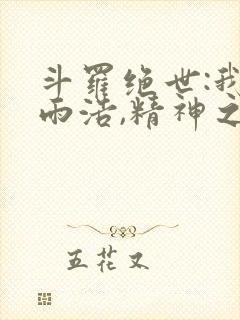 斗羅绝世:我
而活,精神之
五花又